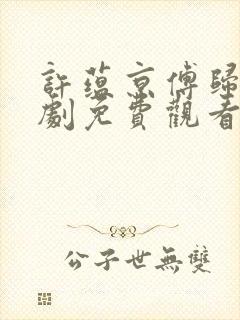 許蘊京傅歸
劇免費觀看
公子世無雙